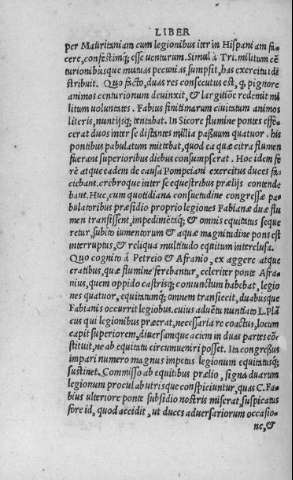 LIBER
per Mauritaniam cum legionibus iter in Hispaniam fa-
cere, confestimq; esse uenturum. Simul à Tri. militum cẽ-
turionibusque mutuas pecunias sumpsit, has exercitui di-
stribuit. Quo facto, duas res consecutus est, q, pignore
animos centurionum deuinxit, & largitiõe redemit mi-
litum uoluntates. Fabius finitimarum ciuitatum animos
literis, nuntijsq; tentabat. In Sicore flumine pontes effe-
cerat duos inter se distantes millia passuum quatuor. his
pontibus pabulatum mittebat, quod ea quæ citra flumen
fuerant superioribus diebus consumpserat. Hoc idem fe-
rè atque eadem de causa Pompeiani exercitus duces fa-
ciebant. crebroque inter se equestribus prælijs contende
bant. Huc, cum quotidiana consuetudine congressæ pa-
bulatoribus præsidio proprio legiones Fabianæ duæ flu
men transissent, impedimentáq; & omnis equitatus seque
retur, subito iumentorum & aquæ magnitudine pons est
interruptus, & reliqua multitudo equitum interclusa.
Quo cognito à Petreio & Afranio, ex aggere atque
cratibus, quæ flumine ferebantur, celeriter ponte Afra-
nius, quem oppido castrisq; coniunctum habebat, legio
nes quatuor, equitatumq; omnem transiecit, duabusque
Fabianis occurrit legiobus. cuius aduẽtu nuntiato L. Plã
cus qui legionibus præerat, necessaria re coactus, locum
capit superiorem, diuersamque aciem in duas partes cõ-
stituit, ne ab equitatu circumueniri posset. Ita congressus
impari numero magnus impetus legionum equitatusq;
sustinet. Commisso ab equitibus prælio, signa duarum
legionum procul ab utrisque conspiciuntur, quas C. Fa-
bius ulteriore ponte subsidio nostris miserat, suspicatus
fore id, quod accidit, ut duces aduersariorum occasio-
ne, &